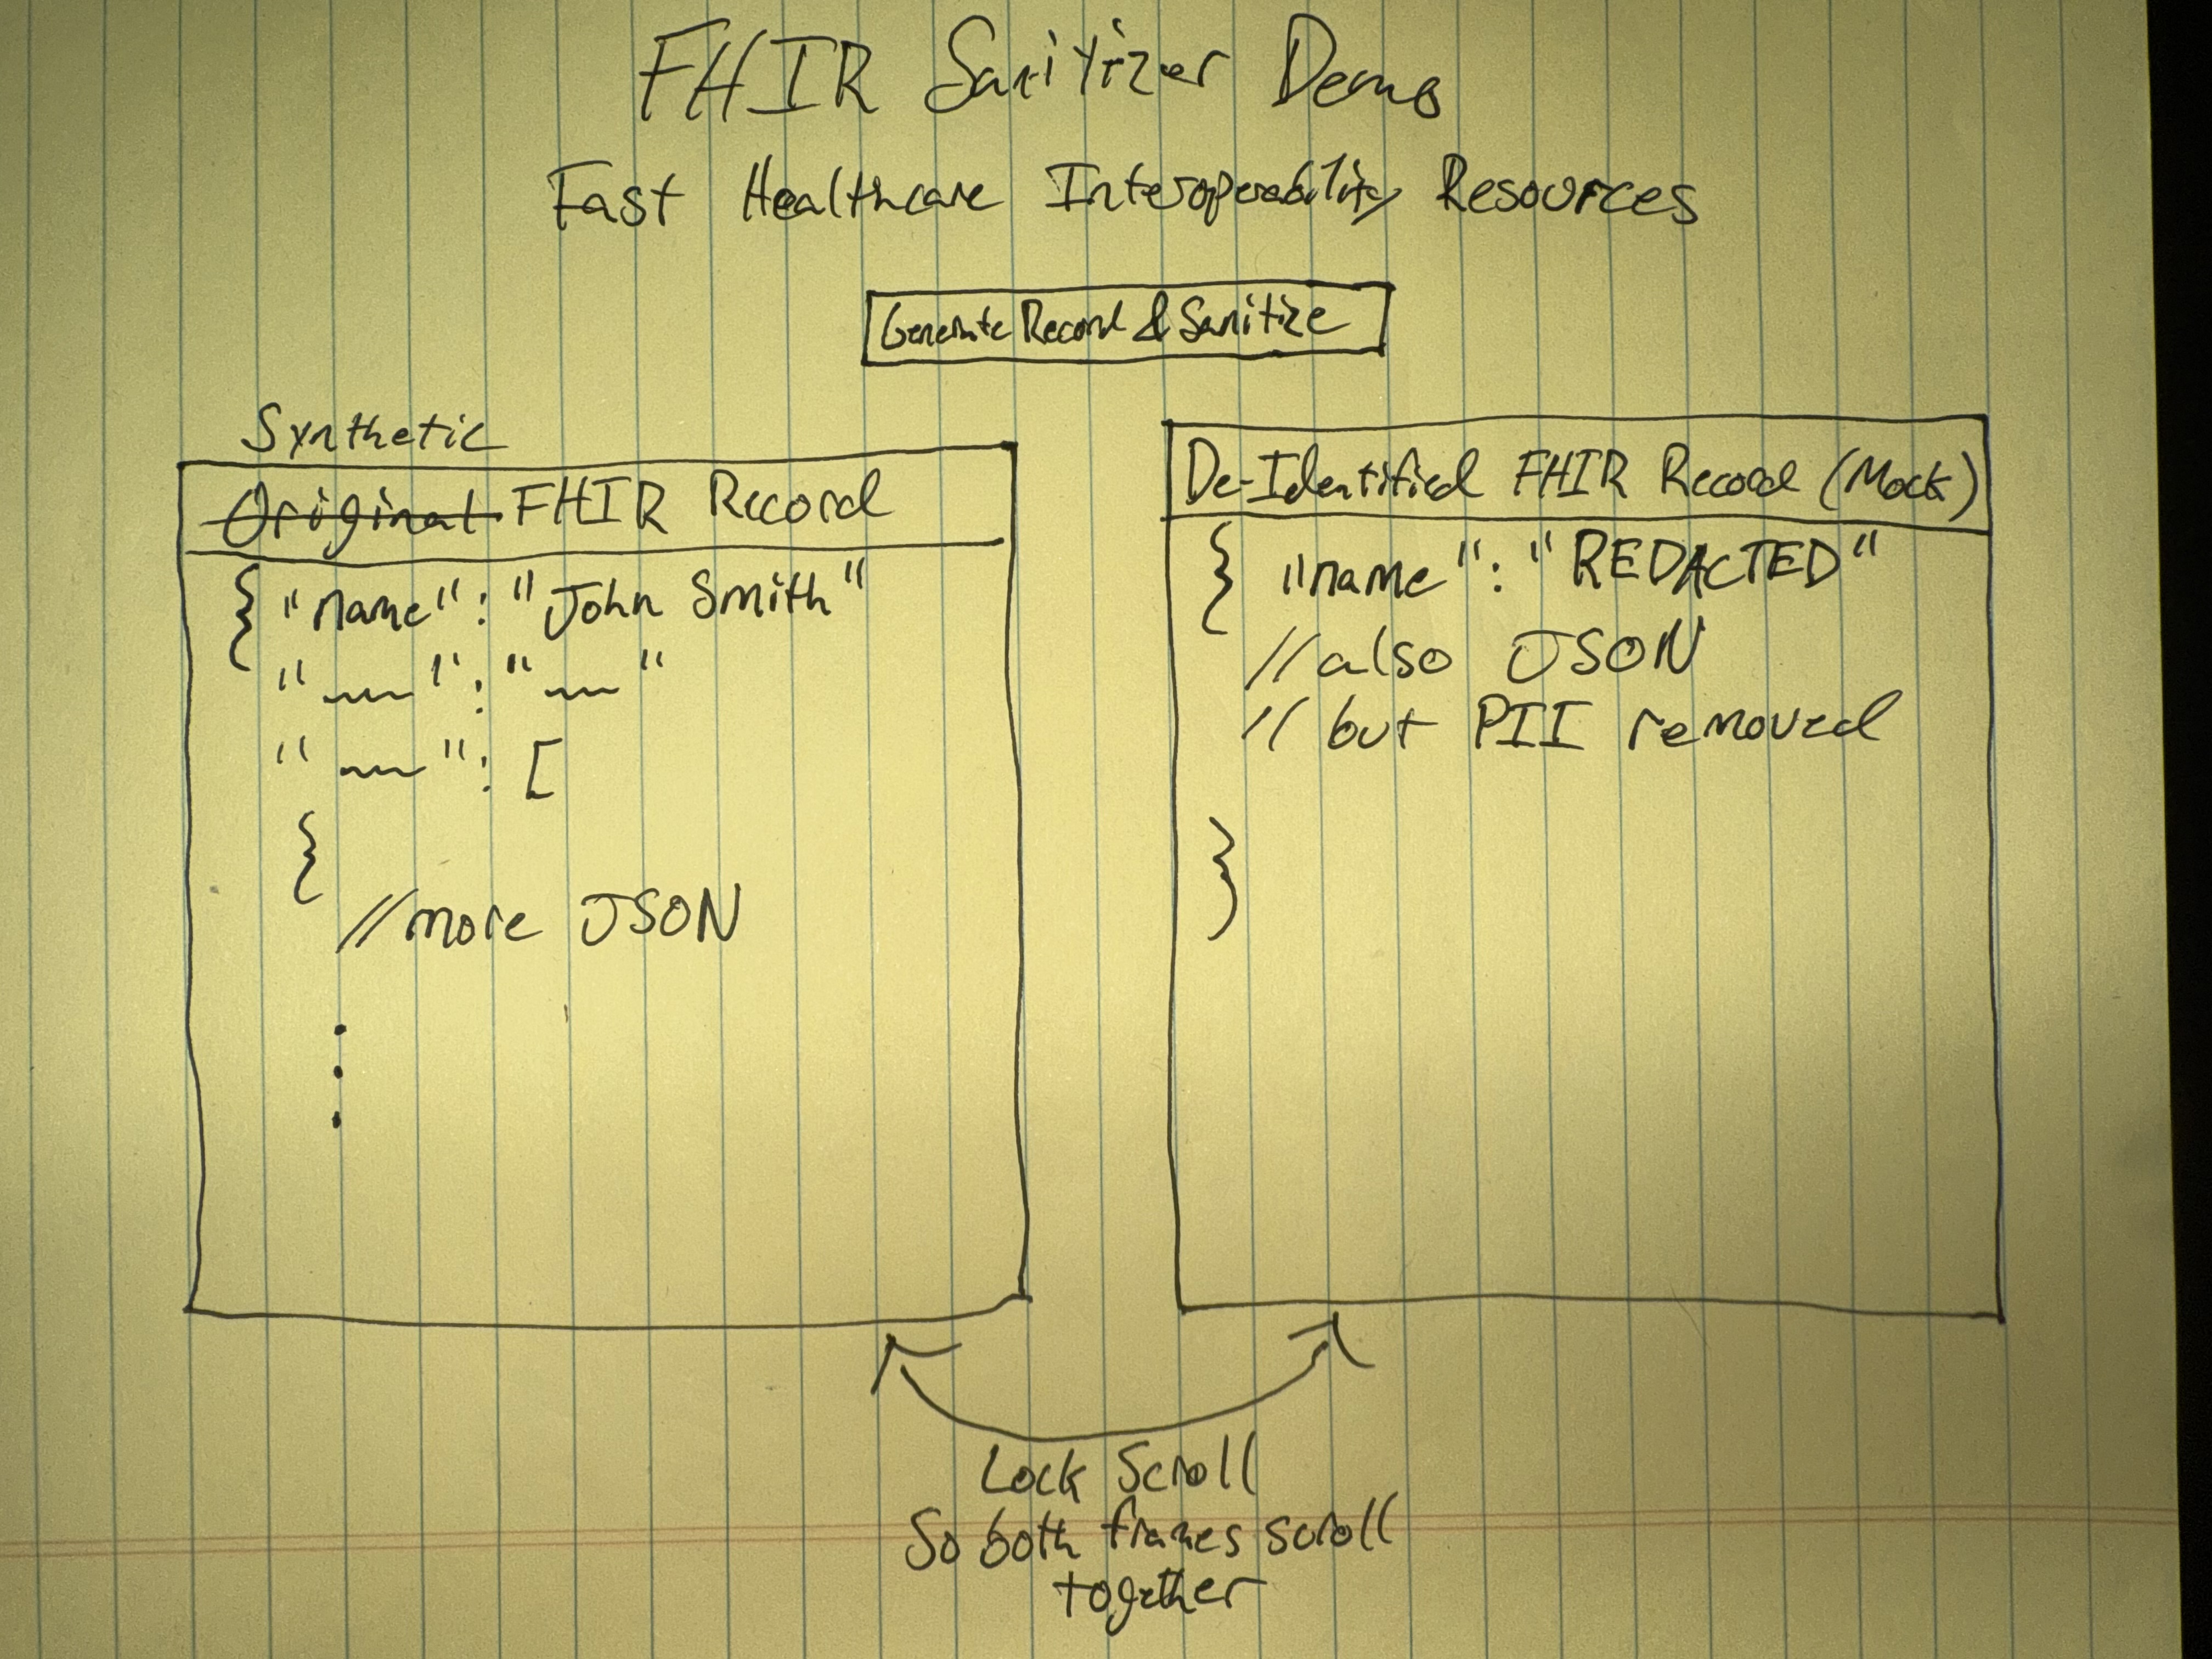 FHIR Sanitizer Demo
Fast Healthcare Interoperability Resources
Generate Record & Sanitize
Synthetic
Original FHIR Record
{ "name": "John Smith"
" ": " "
" ": [
{
//more JSON
.
.
.
De-Identified FHIR Record (Mock)
{ "name": "REDACTED"
//also JSON
// but PII removed
}
Lock Scroll
So both frames scroll
together